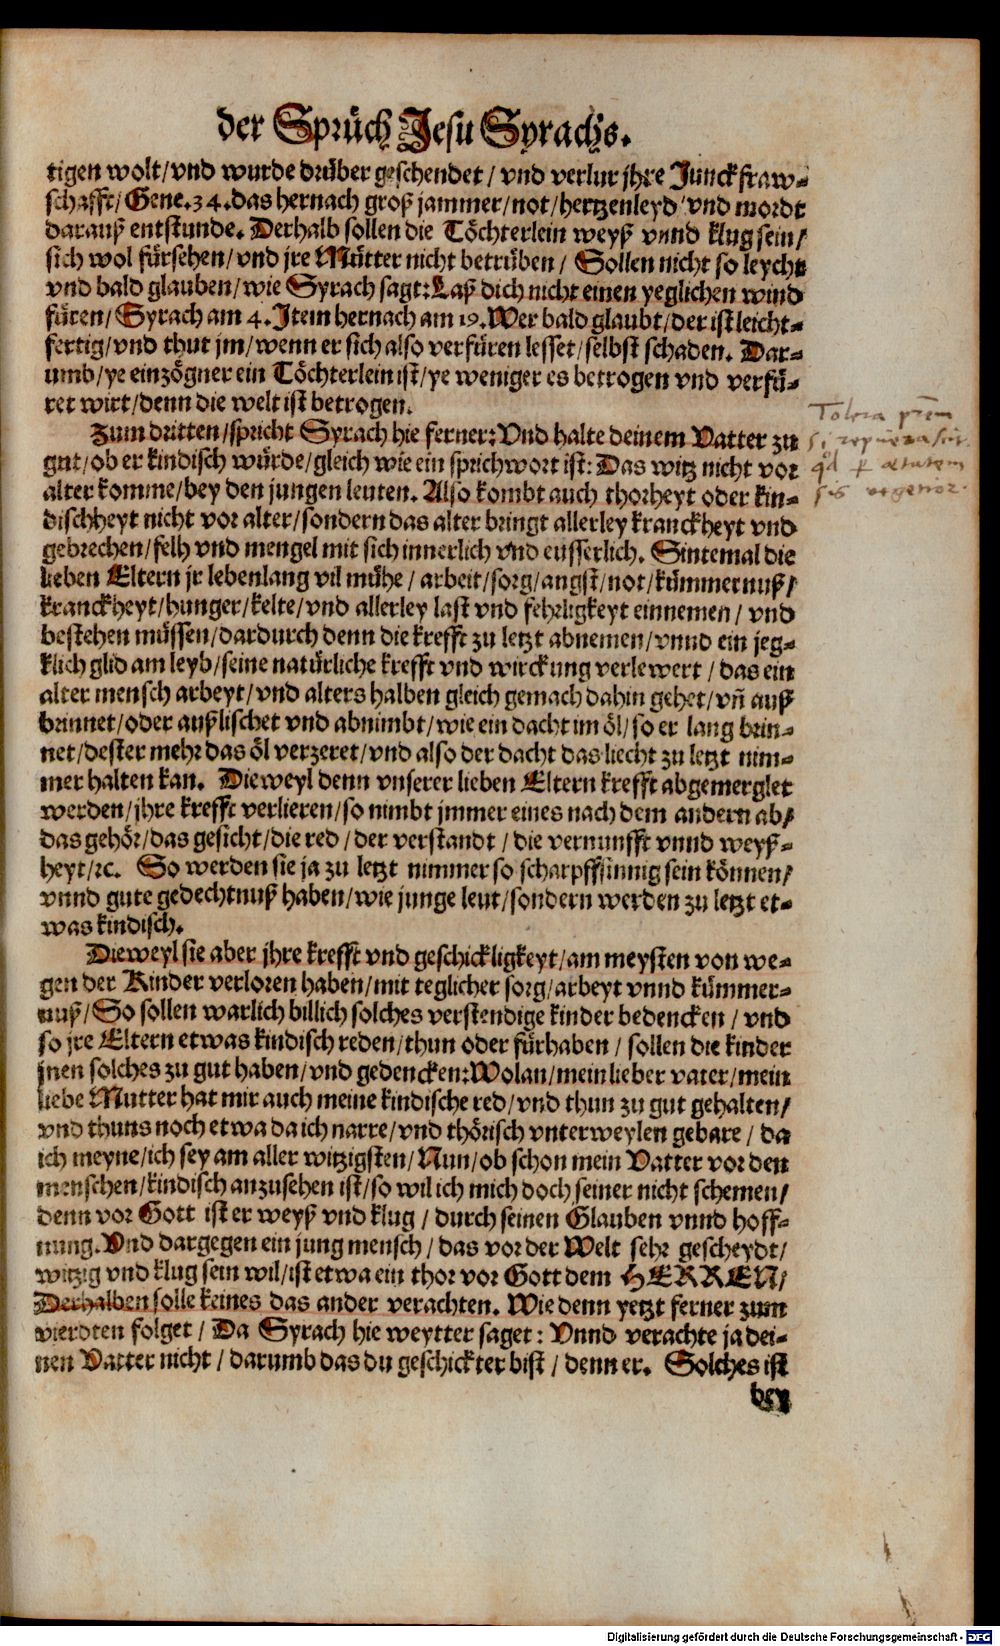 der Sprüch Jesu Syrachs.
tigen wolt/vnd wurde drüber geschendet/vnd verlur jhre Junckfraw-
schafft/Gene.34.das hernach groß jammer/not/hertzenleyd/vnd mordt
darauß entstunde. Derhalb sollen die Töchterlein weyß vnnd klug sein/
sich wol fürsehen/vnd jre Mütter nicht betrüben/Sollen nicht so leycht
vnd bald glauben/wie Syrach sagt:Laß dich nicht einen yeglichen wind
füren/Syrach am 4.Item hernach am 19.Wer bald glaubt/der ist leicht-
fertig/vnd thut jm/wenn er sich also verfüren lesset/selbst schaden. Dar-
umb/ye einzögner ein Töchterlein ist/ye weniger es betrogen vnd verfü-
ret wirt/denn die welt ist betrogen.
Zum dritten/spricht Syrach hie ferner:Vnd halte deinem Vatter zu
gut/ob er kindisch würde/gleich wie ein sprichwort ist: Das witz nicht vor
alter komme/bey den jungen leuten. Also kombt auch thorheyt oder kin-
dischheyt nicht vor alter/sondern das alter bringt allerley kranckheyt vnd
gebrechen/felh vnd mengel mit sich innerlich vnd eusserlich. Sintemal die
lieben Eltern jr lebenlang vil mühe/arbeit/sorg/angst/not/kümmernuß/
kranckheyt/hunger/kelte/vnd allerley last vnd fehrligkeyt einnemen/vnd
bestehen müssen/dardurch denn die krefft zu letzt abnemen/vnnd ein jeg-
klich glid am leyb/seine natürliche krefft vnd wirckung verlewert/das ein
alter mensch arbeyt/vnd alters halben gleich gemach dahin gehet/vñ auß
brinnet/oder außlischet vnd abnimbt/wie ein dacht im öl/so er lang brin-
net/dester mehr das öl verzeret/vnd also der dacht das liecht zu letzt nim-
mer halten kan. Dieweyl denn vnserer lieben Eltern krefft abgemerglet
werden/jhre krefft verlieren/so nimbt jmmer eines nach dem andern ab/
das gehör/das gesicht/die red/der verstandt/die vernunfft vnnd weyß-
heyt/rc. So werden sie ja zu letzt nimmer so scharpffsinnig sein können/
vnnd gute gedechtnuß haben/wie junge leut/sondern werden zu letzt et-
was kindisch.
Dieweyl sie aber jhre krefft vnd geschickligkeyt/am meysten von we-
gen der Kinder verloren haben/mit teglicher sorg/arbeyt vnnd kümmer-
nuß/So sollen warlich billich solches verstendige kinder bedencken/vnd
so jre Eltern etwas kindisch reden/thun oder fürhaben/sollen die kinder
jnen solches zu gut haben/vnd gedencken:Wolan/mein lieber vater/mein
liebe Mutter hat mir auch meine kindische red/vnd thun zu gut gehalten/
vnd thuns noch etwa da ich narre/vnd thörisch vnterweylen gebare/da
ich meyne/ich sey am aller witzigsten/Nun/ob schon mein Vatter vor den
menschen/kindisch anzusehen ist/so wil ich mich doch seiner nicht schemen/
denn vor Gott ist er weyß vnd klug/durch seinen Glauben vnnd hoff-
nung.Vnd dargegen ein jung mensch/das vor der Welt sehr gescheydt/
witzig vnd klug sein wil/ist etwa ein thor vor Gott dem HERREN/
Derhalben solle keines das ander verachten. Wie denn yetzt ferner zum
vierdten folget/Da Syrach hie weytter saget: Vnnd verachte ja dei-
nen Vatter nicht/darumb das du geschickter bist/denn er. Solches ist
bey
Tolera
si
ætatem
sis
Digitalisierung gefördert durch die Deutsche Forschungsgemeinschaft - DFG